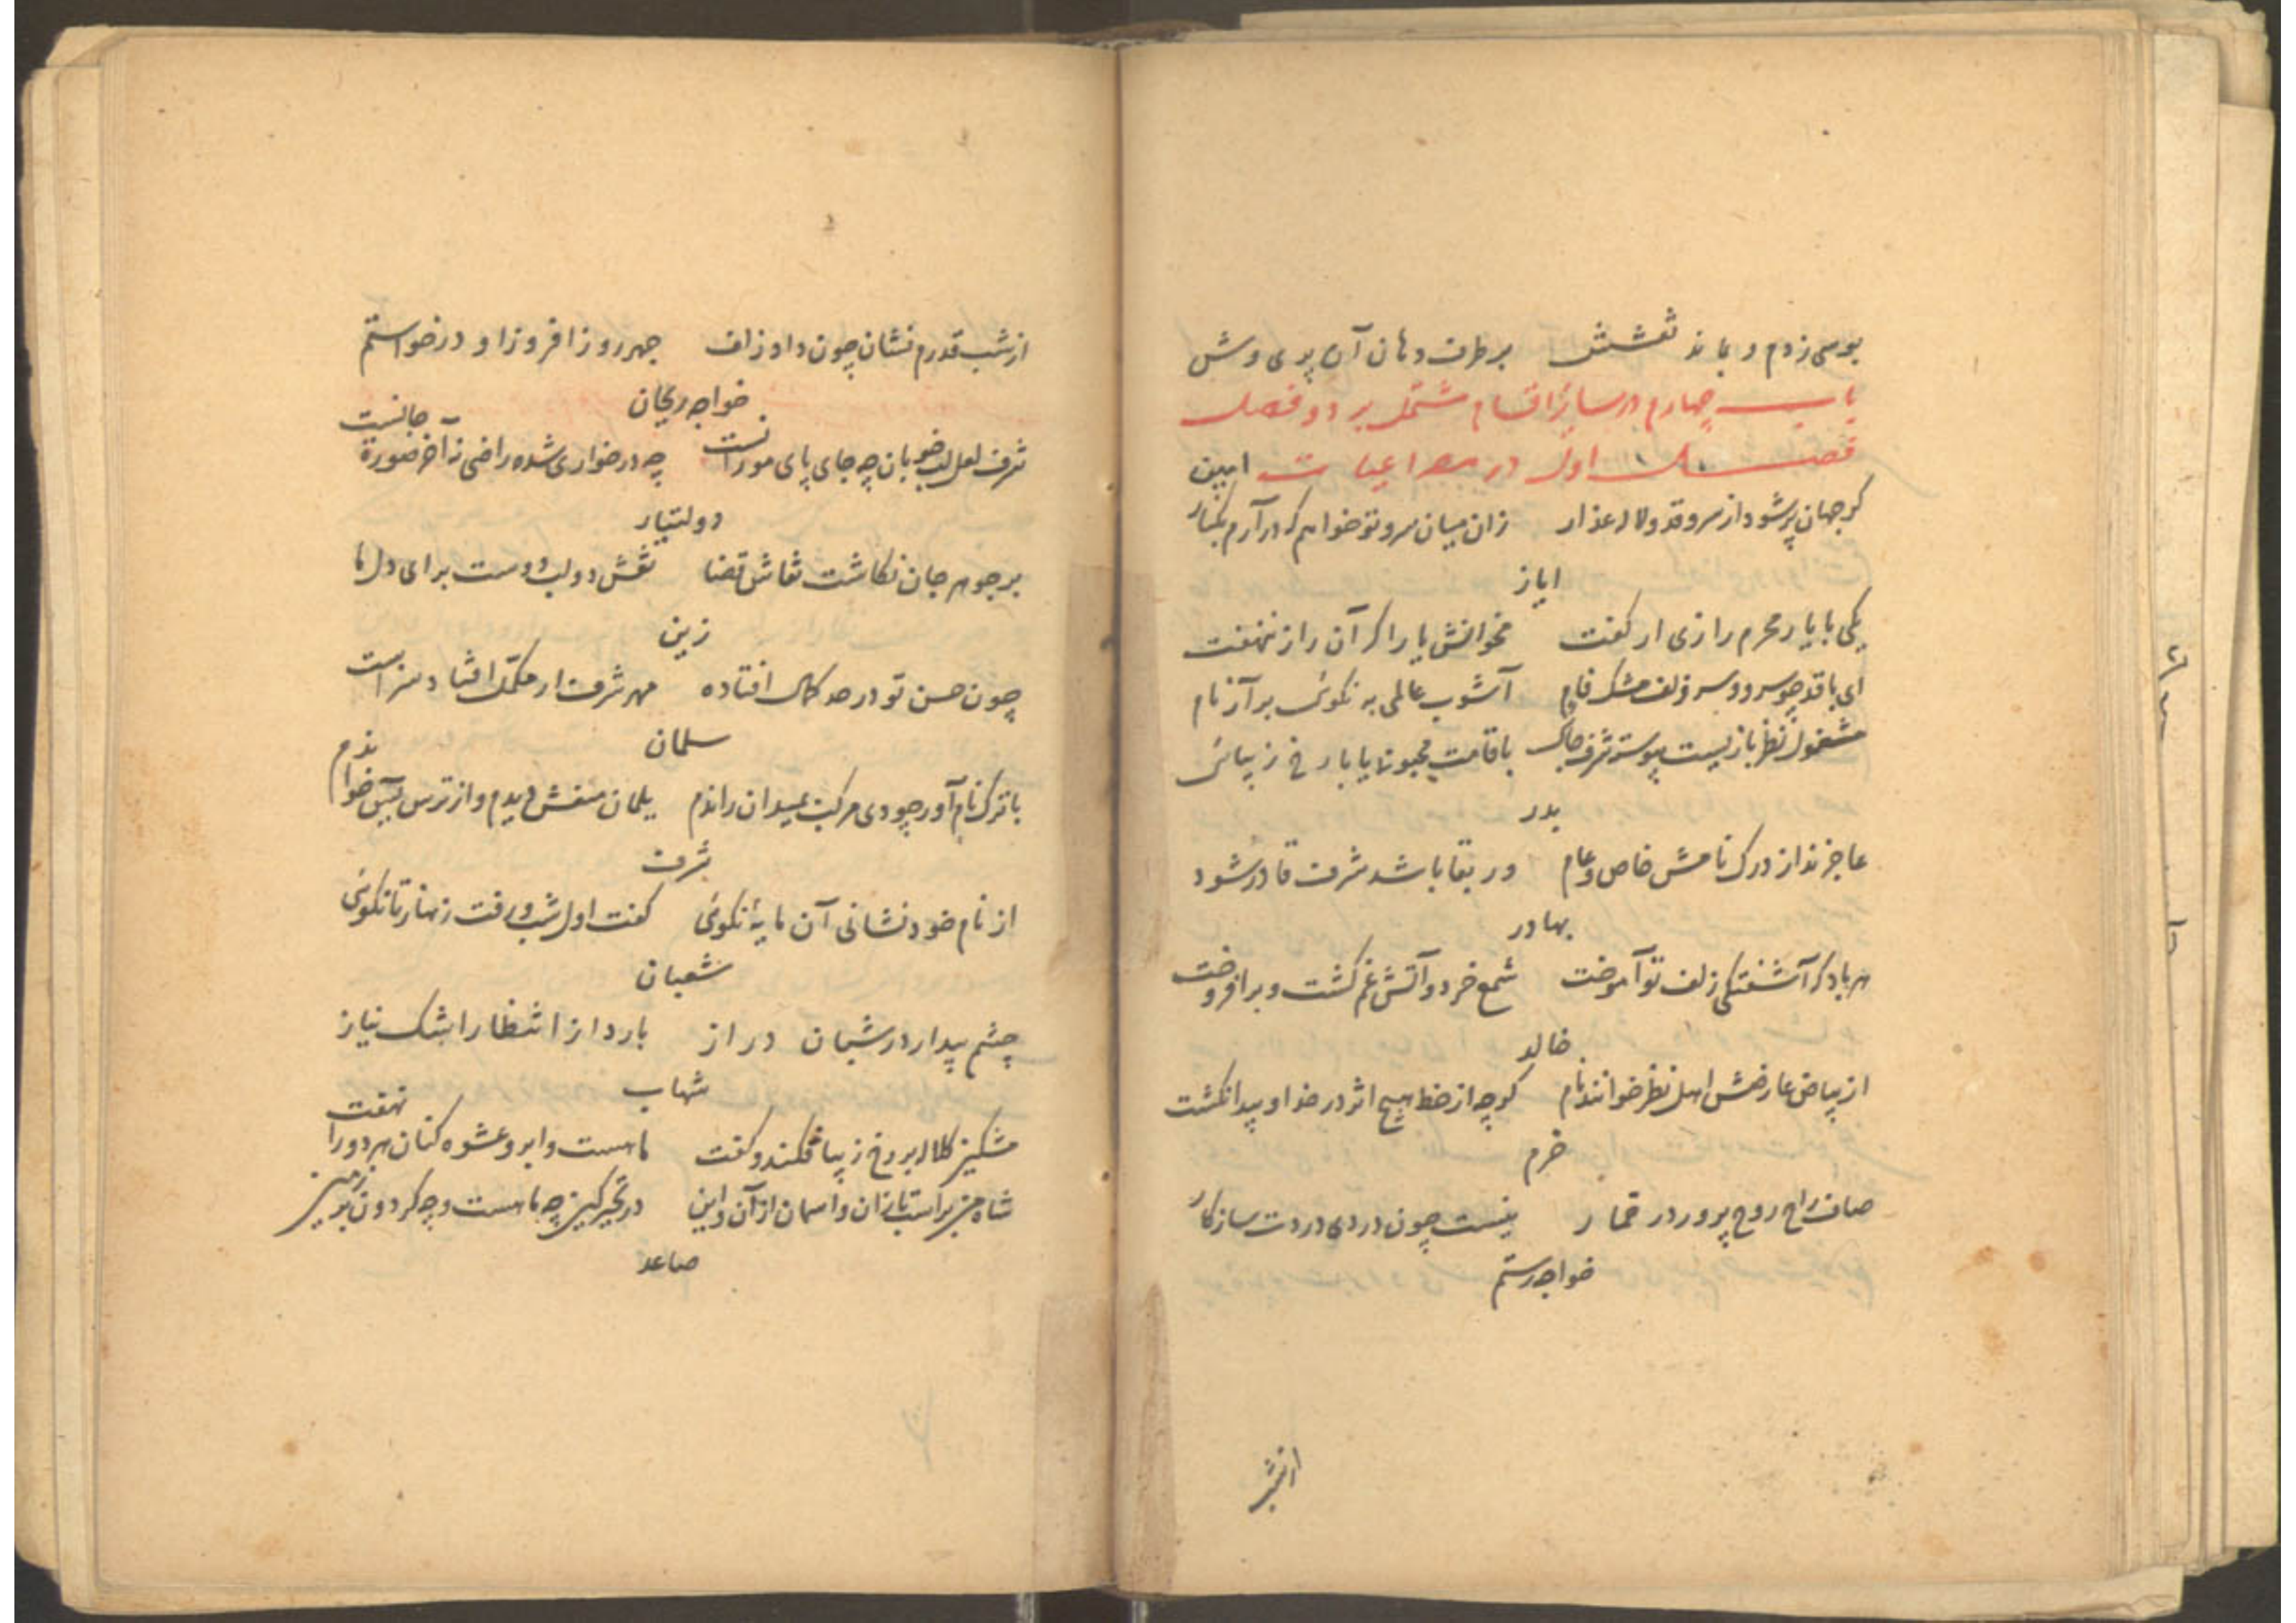 بوسی زدم و بماند نقشش بر طرف دهان آن پری وش
باب چهارم در سایر اقسام مشتمل بر دو فصل
فصل اول در مصراعیات امین
کر جهان پر شود از سرو قد و لاله عذار زان میان سرو تو خواهم که در آرم بکنار
ایاز
یکی با یار محرم رازی ار کفت مخوانش یار اکر آن راز ننهفت
ای با قد چو سرو و سر زلف مشک فام آشوب عالمی به نکوئی بر آر نام
مشغول نظر بازیست پیوسته شرف با قامت محبوب یا با رخ زیبائی
بدر
عاجزند از درک نامش خاص و عام ور بقا باشد شرف قادر شود
بهادر
هر باد که آشفتکی زلف تو آموخت شمع خرد و آتش غم کشت و بر افروخت
خالد
از بیاض عارضش اهل نظر خوانند نام کرچه از خط هیچ اثر در خد او پیدا نکشت
خرم
صاف راح روح پرور در خمار نیست چون دردی دردت سازکار
خواجه رستم
از شب
از شب قدرم نشان چون داد زلف چهر روز افروز او در خواستم
خواجه ریحان
شرف لعل لب خوبان چه جای پای مورانست چه در خواری شده راضی نه آخر صورة جانست
دولتیار
بر جوهر جان نکاشت نقاش قضا نقش دو لب دوست برای دل ما
زین
چون حسن تو در حد کمال افتاده مهر شرف ار افتاد سزاست
سلمان
با ترک نام آور چو دی مرکب بمیدان راندم یلمان دیدم و از ترس خواندم
شرف
از نام خود نشانی آن مایهٔ نکوئی کفت اول شب و رفت زنهار تا نکوئی
شعبان
چشم بیدار در شبان دراز بارد از انتظار اشک نیاز
شهاب
مشکین کلاله بر رخ زیبا فکند و کفت ماهست و ابرو عشوه کنان هر دو را نهفت
شاه من بر اسب تازان و اسمان از آن و این در تحیر کین چه ماهست و چه کردون بر زمین
صاعد